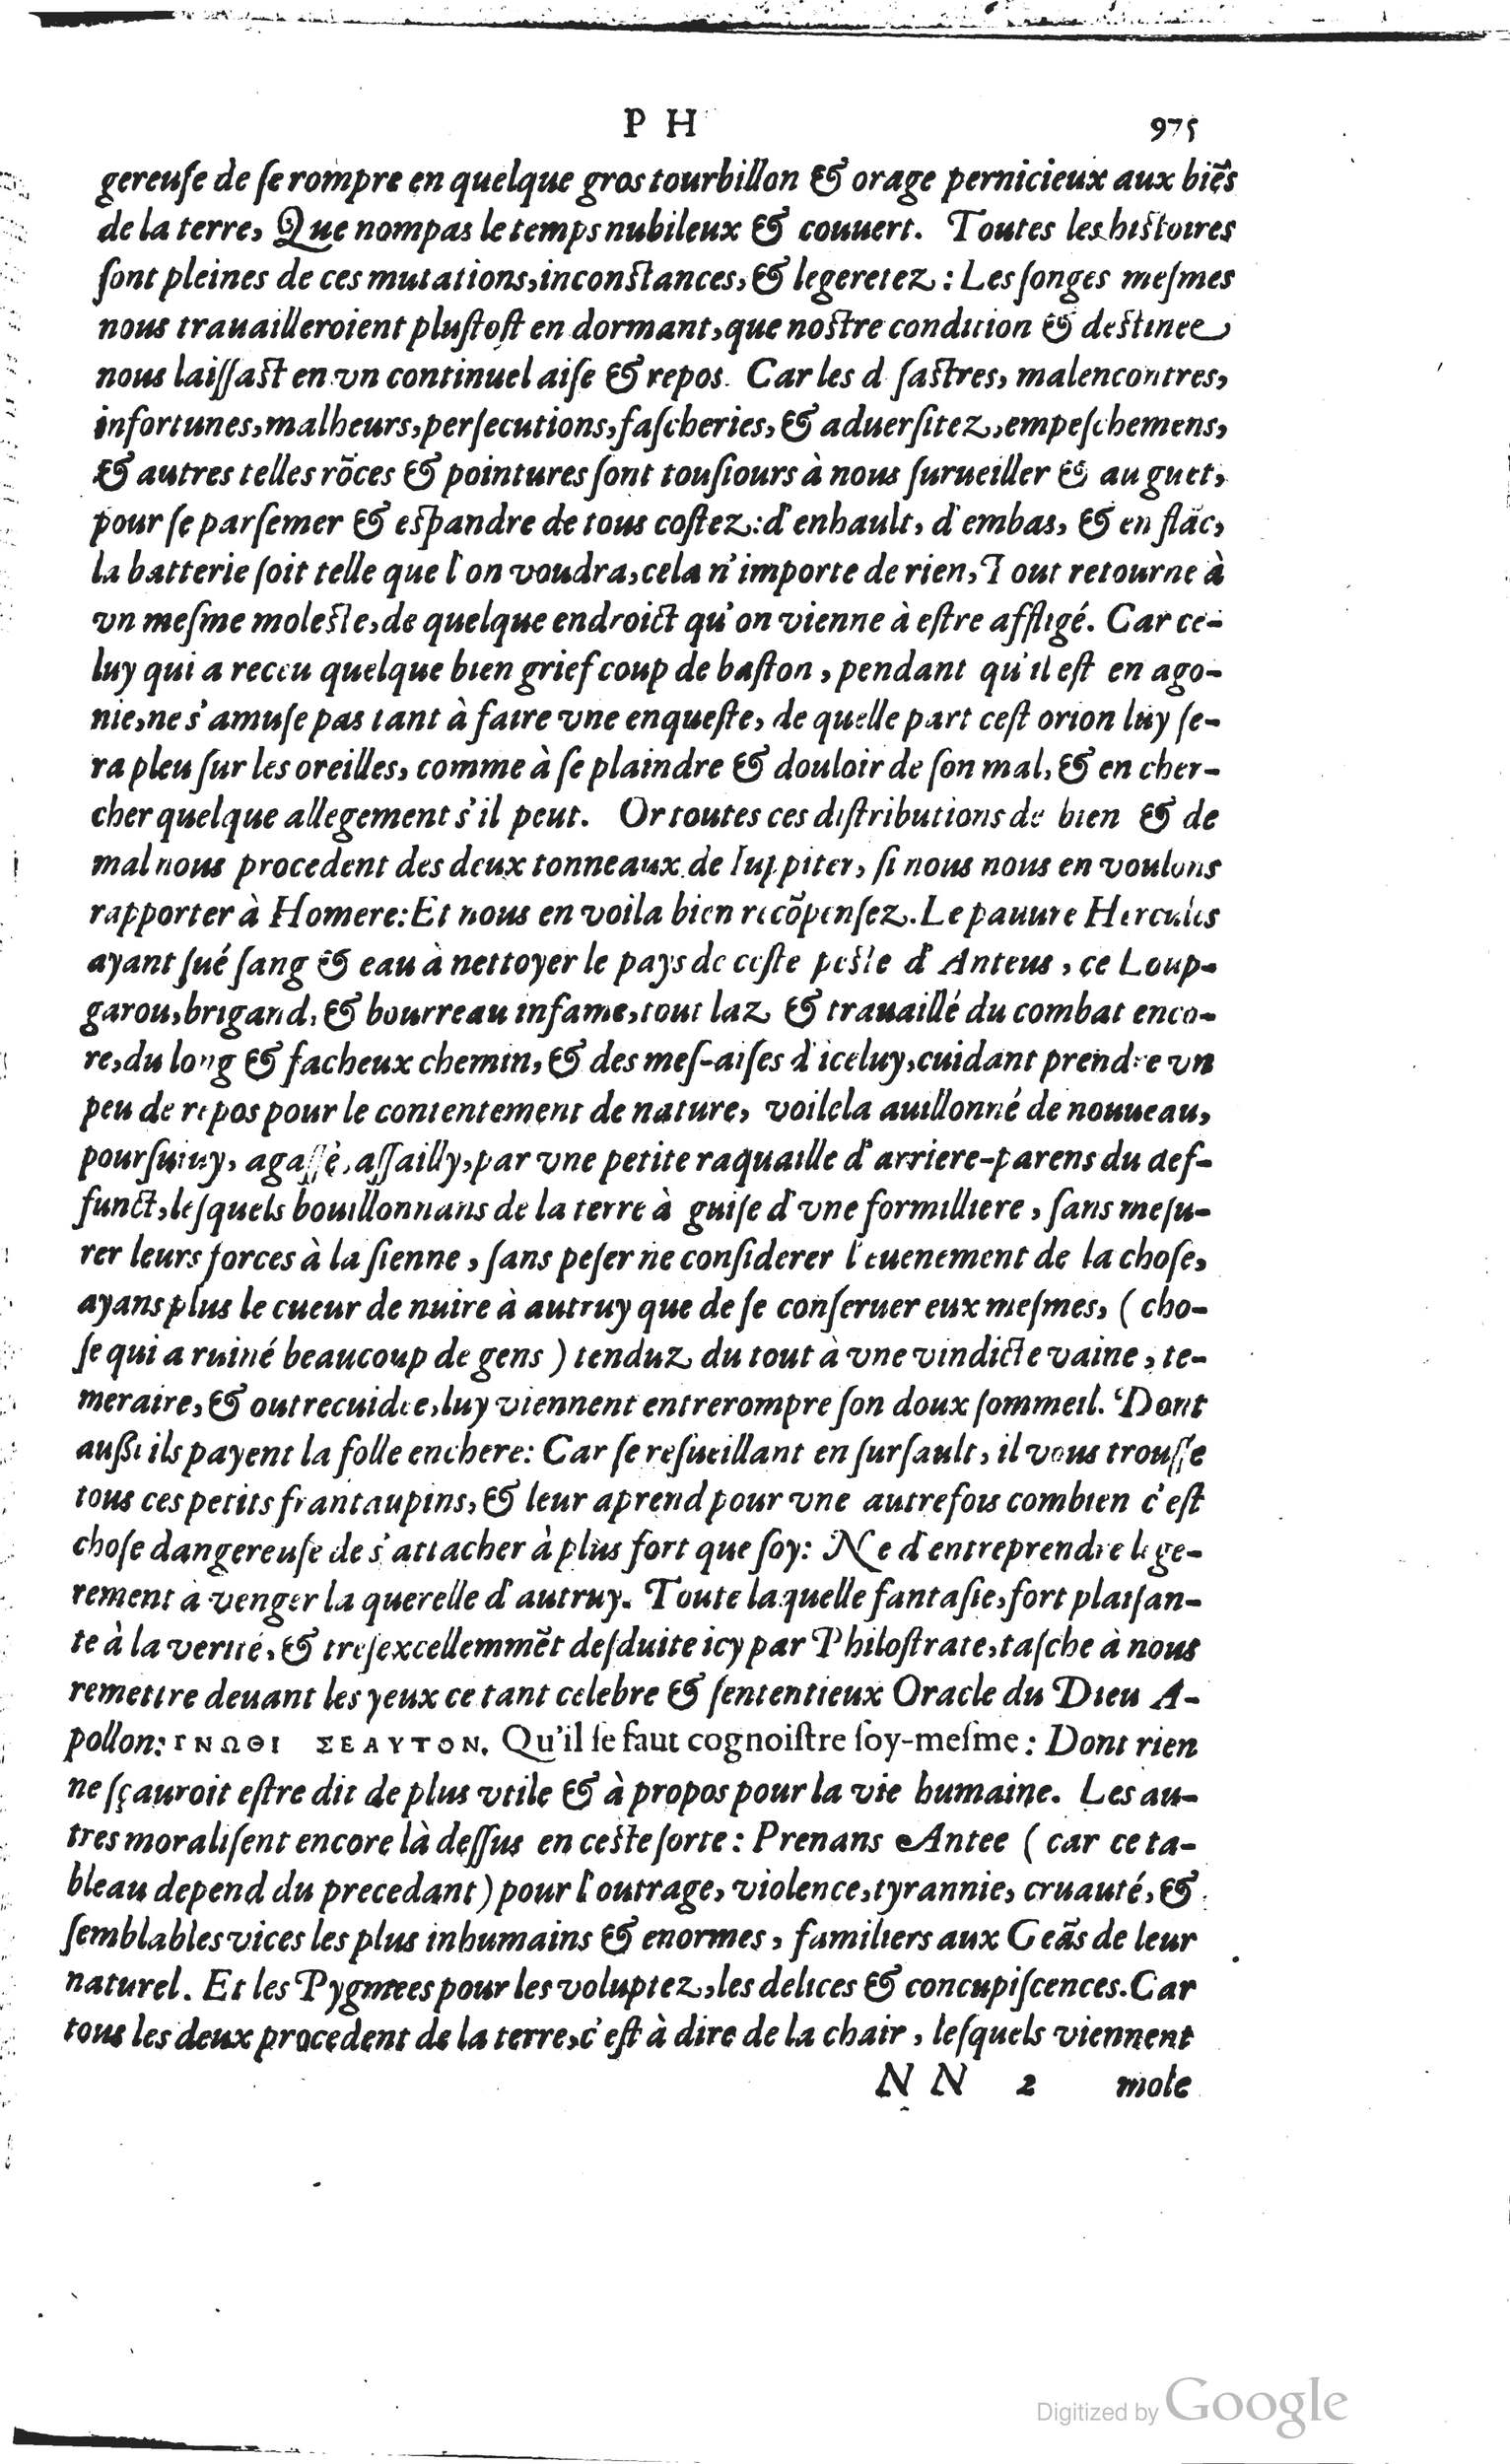 P H 975
gereuſe de ſe rompre en quelque gros tourbillon & orage pernicieux aux biẽs
de la terre, Que nompas le temps nubileux & couuert. Toutes les hiſtoires
ſont pleines de ces mutations, inconſtances, & legeretez : Les ſonges meſmes
nous trauailleroient pluſtoſt en dormant, que noſtre condition & deſtinee
nous laiſſaſt en vn continuel aiſe & repos. Car les d ſaſtres, malencontres,
infortunes, malheurs, perſecutions, faſcheries, & aduerſitez, empeſchemens,
& autres telles rõces & pointures ſont touſiours à nous ſurueiller & au guet,
pour ſe parſemer & eſpandre de tous coſtez: d'enhault, d'embas, & en flãc,
la batterie ſoit telle que l'on voudra, cela n'importe de rien, Tout retourne à
vn meſme moleſte, de quelque endroict qu'on vienne à eſtre affligé. Car ce-
luy qui a receu quelque bien grief coup de baſton, pendant qu'il eſt en ago-
nie, ne s'amuſe pas tant à faire vne enqueſte, de quelle part ceſt orion luy ſe-
ra pleu ſur les oreilles, comme à ſe plaindre & douloir de ſon mal, & en cher-
cher quelque allegement s'il peut. Or toutes ces diſtributions de bien & de
mal nous procedent des deux tonneaux de Iuppiter, ſi nous nous en voulons
rapporter à Homere: Et nous en voila bien recõpenſez. Le pauure Hercules
ayant ſué ſang & eau à nettoyer le pays de ceſte peſte d'Anteus, ce Loup-
garou, brigand, & bourreau infame, tout laz & trauaillé du combat enco-
re, du long & facheux chemin, & des meſ-aiſes d'iceluy, cuidant prendre vn
peu de repos pour le contentement de nature, voilela auillonné de nouueau,
pourſuiuy, agaſſé, aſſailly, par vne petite raquaille d'arriere-parens du def-
funct, leſquels bouillonnans de la terre à guiſe d'vne formilliere, ſans meſu-
rer leurs forces à la ſienne, ſans peſer ne conſiderer l'euenement de la choſe,
ayans plus le cueur de nuire à autruy que de ſe conſeruer eux meſmes, (cho-
ſe qui a ruiné beaucoup de gens) tenduz du tout à vne vindicte vaine, te-
meraire, & outrecuidee, luy viennent entrerompre ſon doux ſommeil. Dont
auſſi ils payent la folle enchere: Car ſe reſueillant en ſurſault, il vous trouſſe
tous ces petits frantaupins, & leur aprend pour vne autrefois combien c'eſt
choſe dangereuſe de s'attacher à plus fort que ſoy: Ne d'entreprendre lege-
rement à venger la querelle d'autruy. Toute laquelle fantaſie, fort plaiſan-
te à la verité, & treſexcellemmẽt deſduite icy par Philoſtrate, taſche à nous
remettre deuant les yeux ce tant celebre & ſententieux Oracle du Dieu A-
pollon: ΓΝΩΘΙ ΣΕΑΥΤΟΝ. Qu'il ſe faut cognoiſtre ſoy-meſme: Dont rien
ne ſçauroit eſtre dit de plus vtile & à propos pour la vie humaine. Les au-
tres moraliſent encore là deſſus en ceſte ſorte: Prenans Antee (car ce ta-
bleau depend du precedant) pour l'outrage, violence, tyrannie, cruauté, &
ſemblables vices les plus inhumains & enormes, familiers aux Geãs de leur
naturel. Et les Pygmees pour les voluptez, les delices & concupiſcences. Car
tous les deux procedent de la terre, c'eſt à dire de la chair, leſquels viennent
N N 2 mole
Digitized by Google